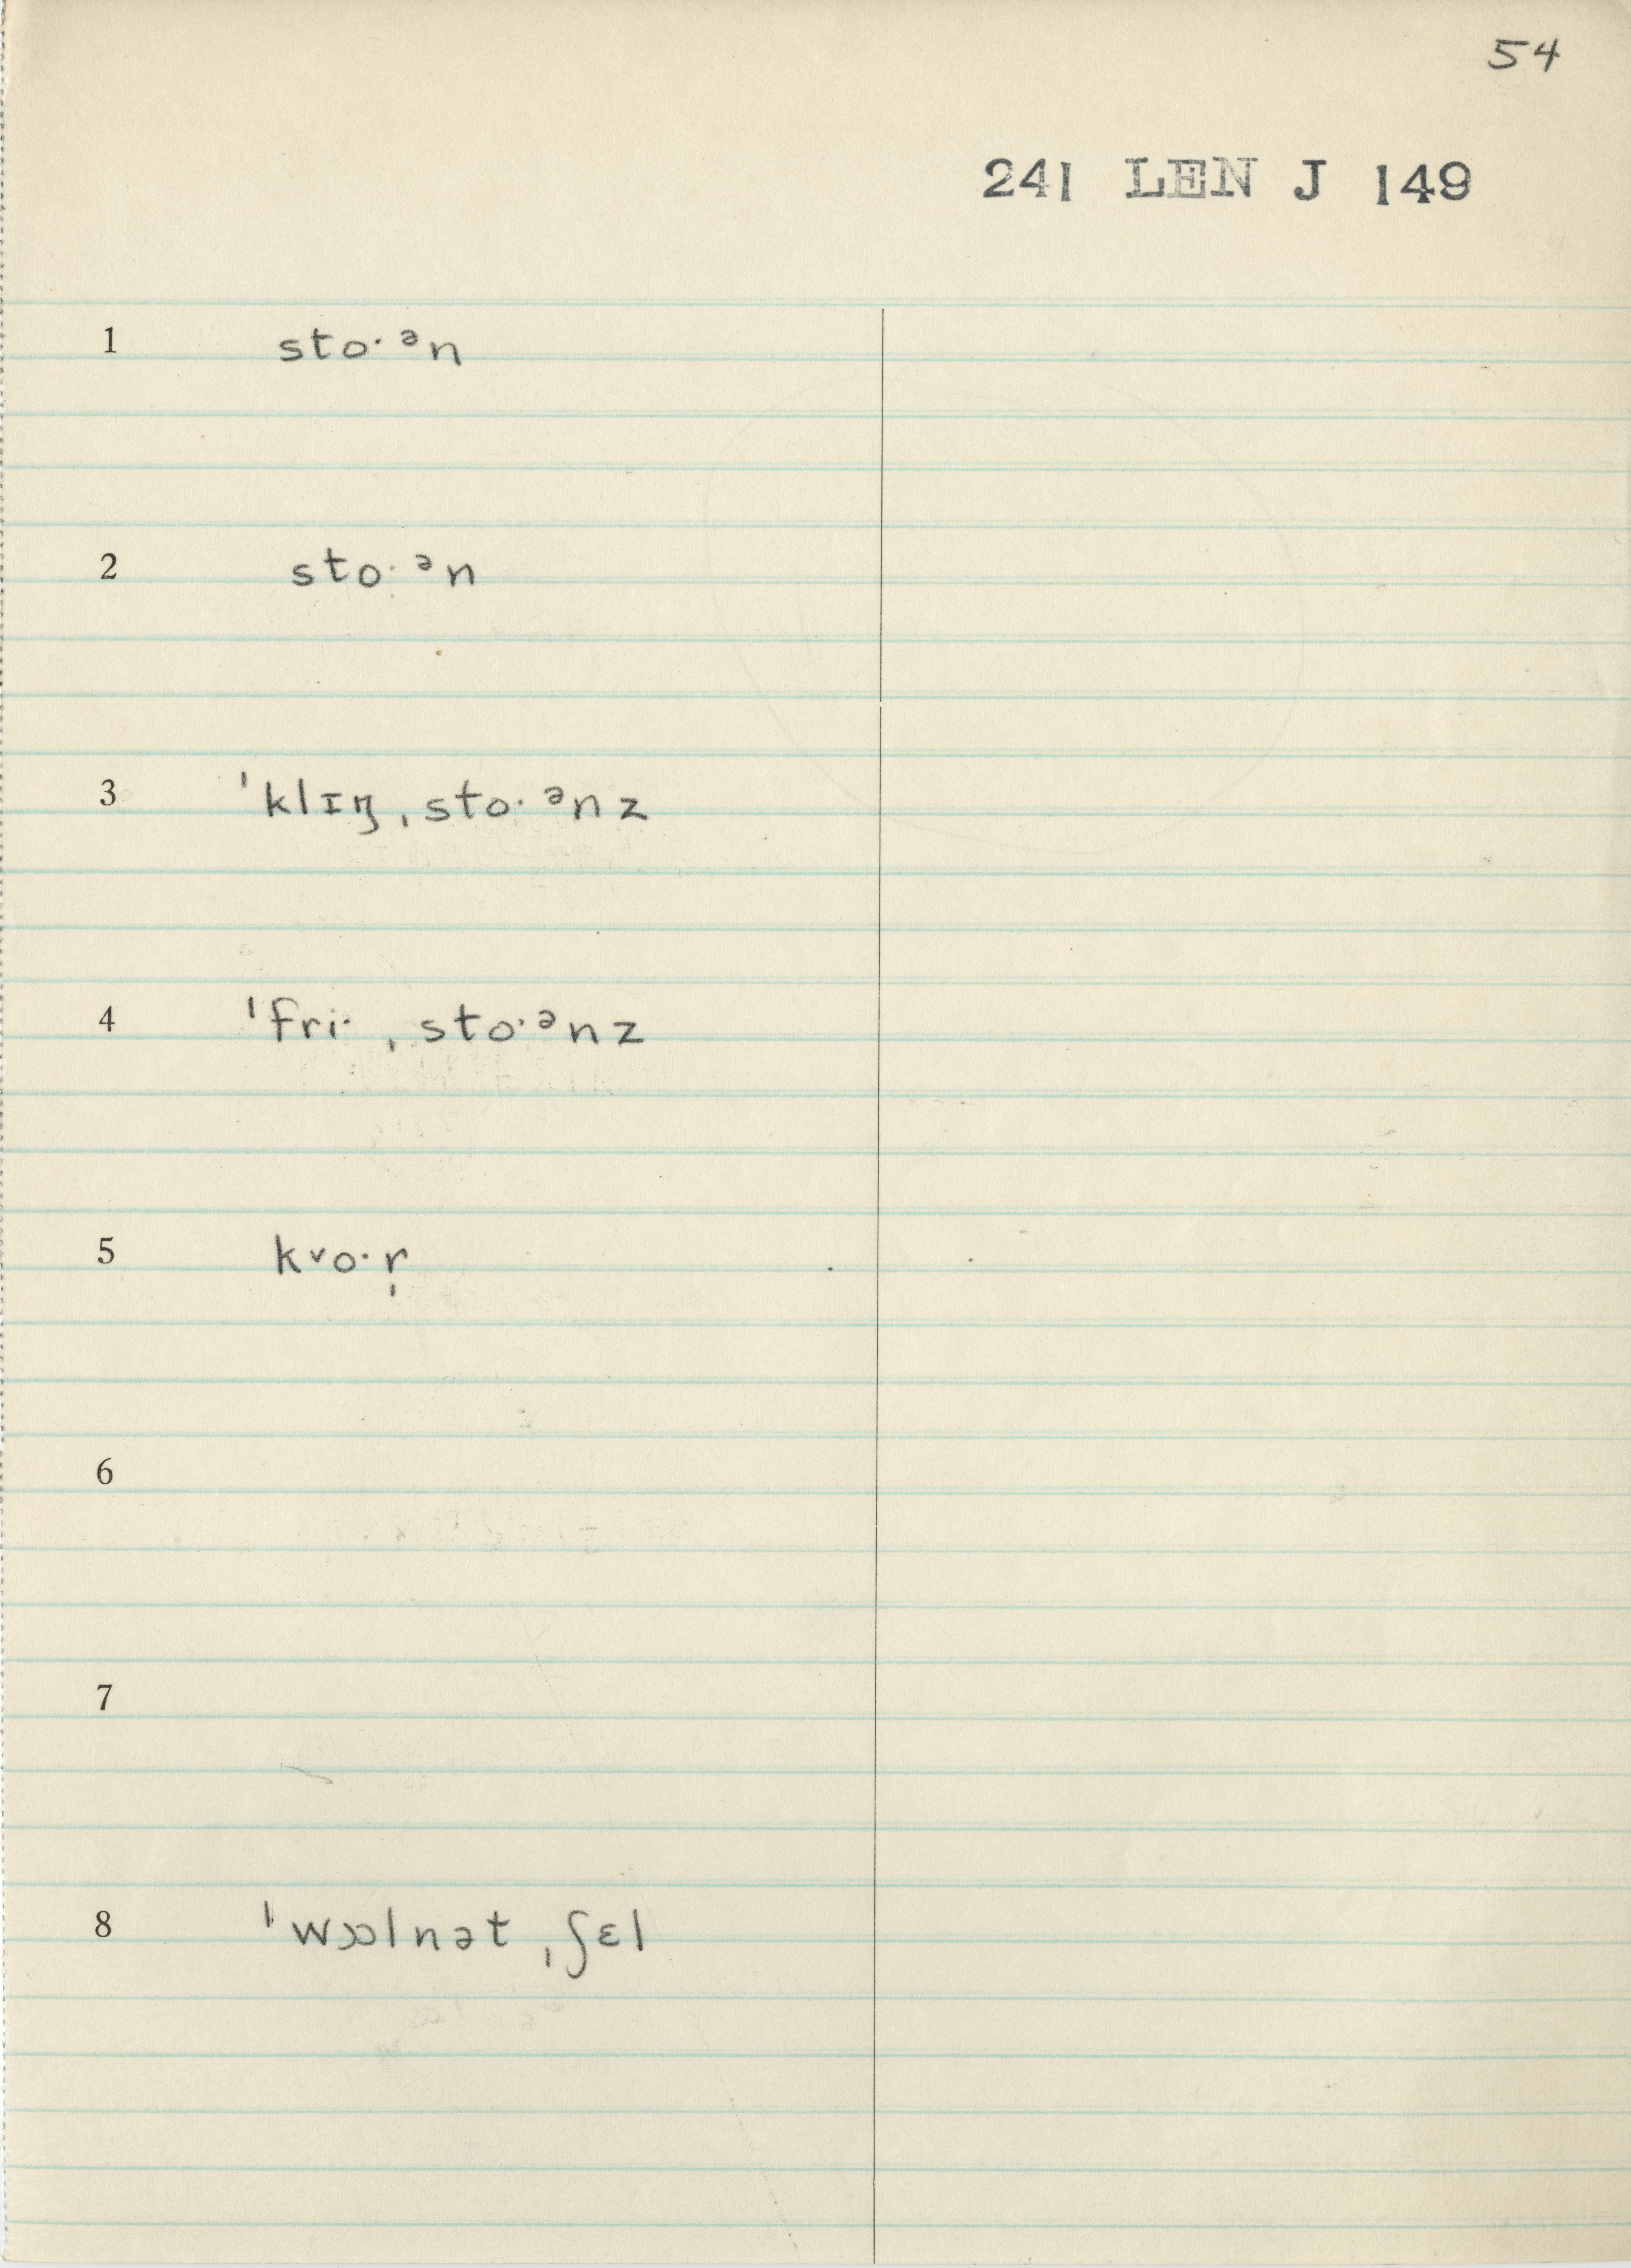 54
241 LEN J 149
1 stoˑᵊn
2 stoˑᵊn
3 ˈklɪŋˌstoˑᵊnz
4 ˈfriˑˌstoˑᵊnz
5 kᵛoˑr̩
6
7
8 ˈwɔɔlnətˌʃɛl